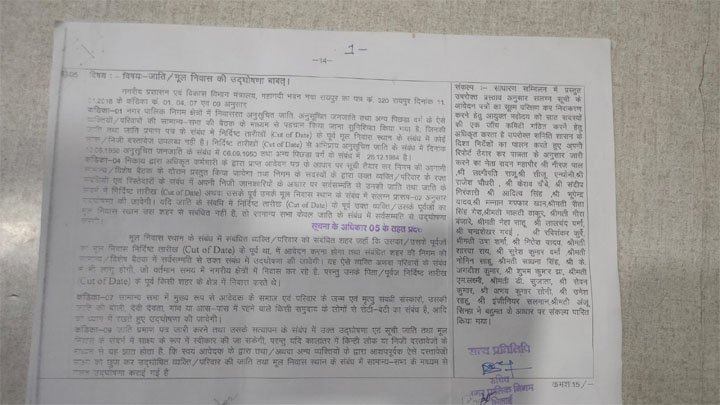 1-
-14-
05 विषय :- विषयः-जाति/मूल निवास की उद्घोषणा बाबत्।
नगरीय प्रशासन एवं विकास विभाग मंत्रालय, महानदी भवन नया रायपुर का पत्र क्रं. 320 रायपुर दिनांक 11.
01.2016 के कंडिका क्रं. 01, 04, 07 एवं 09 अनुसार
कंडिका-01 नगर पालिक निगम क्षेत्रों में निवासरत अनुसूचित जाति, अनुसूचित जनजाति तथा अन्य पिछड़ा वर्ग के ऐसे
व्यक्तियों/परिवारों की सामान्य सभा की बैठक के माध्यम से पहचान किया जाना सुनिश्चित किया गया है, जिनकी
जाति तथा जाति प्रमाण पत्र के संबंध में निर्दिष्ट तारीखों (Cut of Date) के पूर्व मूल निवास स्थान के संबंध में कोई
/निजी दस्तावेज उपलब्ध नहीं है। निर्दिष्ट तारीखों (Cut of Date) से अभिप्राय अनुसूचित जाति के संबंध में दिनांक
.1950 अनुसूचित जनजाति के संबंध में 06.09.1950 तथा अन्य पिछड़ा वर्ग के संबंध में 26.12.1984 है।
कंडिका-04 निकाय द्वारा अधिकृत कर्मचारी के द्वारा प्राप्त आवेदन पत्र के आधार पर सूची तैयार कर निगम की आगामी
सामान्य/विशेष बैठक के दौरान प्रस्तुत किया जायेगा तथा निगम के सदस्यों के द्वारा उक्त व्यक्ति/परिवार के रक्त
संबंधियों एवं रिश्तेदारों के संबंध में अपनी निजी जानकारियों के आधार पर सर्वसम्मति से उनकी जाति तथा जाति के
में निर्दिष्ट तारीख (Cut of Date) अथवा उसके पूर्व उनके मूल निवास स्थान के संबंध में संलग्न प्रारूप-02 अनुसार
उद्घोषणा की जावेगी। यदि जाति के संबंधि में निर्दिष्ट तारीख (Cut of Date) के पूर्व उक्त व्यक्ति/उसके पूर्वजों का
मूल निवास स्थान उस शहर से संबंधित नहीं है, तो सामान्य सभा केवल जाति के संबंध में सर्वसम्मति से उद्घोषणा
सूचना के अधिकार 05 के तहत प्रदत्त
मूल निवास स्थान के संबंध में संबंधित व्यक्ति/परिवार को संबंधित शहर जहाँ कि उसका/उसके पूर्वजों
का मूल निवास निर्दिष्ट तारीख (Cut of Date) के पूर्व था, में आवेदन करना होगा तथा संबंधित शहर की निगम की
सामान्य/विशेष बैठक में सर्वसम्मति से उक्त संबंध में उद्घोषणा की जावेगी। यह ऐसे व्यक्ति अथवा परिवारों के संबंध
में भी लागू होगी, जो वर्तमान समय में नगरीय क्षेत्रों में निवास कर रहे है, परन्तु उनके पिता/पूर्वज निर्दिष्ट तारीख
(Cut of Date) के पूर्व किसी शहर के क्षेत्र में निवास करते थे।
कंडिका-07 सामान्य सभा में मुख्य रूप से आवेदक के समाज एवं परिवार के जन्म एवं मृत्यु संबंधी संस्कारों, उसकी
जाति की बोली, देवी देवता, गांव या आस-पास में रहने वाले किसी समुदाय के लोगों से रोटी-बेटी का संबंध है, आदि
को ध्यान में रखते हुए उद्घोषणा की जावेगी।
कंडिका-09 जाति प्रमाण पत्र जारी करने तथा उसके सत्यापन के संबंध में उक्त उद्घोषणा एवं सूची जाति तथा मूल
निवास के संदर्भ में साक्ष्य के रूप में स्वीकार की जा सकेगी, परन्तु यदि कालांतर में किन्ही लोक या निजी दस्तावेजों के
माध्यम से यह ज्ञात होता है, कि स्वयं आवेदक के द्वारा तथा/अथवा अन्य व्यक्तियों के द्वारा आशयपूर्वक ऐसे दस्तावेजों
को छुपा कर उद्घोषित व्यक्ति/परिवार की जाति तथा मूल निवास स्थान के संबंध में सामान्य-सभा के माध्यम से
उद्घोषणा कराई गई है
संकल्प :- साधारण सम्मिलन में प्रस्तुत
उपरोक्त प्रस्ताव अनुसार संलग्न सूची के
आवेदन पत्रों का सूक्ष्म परीक्षण कर निराकरण
करने हेतु आयुक्त महोदय को सात सदस्यों
की एक जाँच कमिटी गठित करने हेतु
अधिकृत करता है उपरोक्त समिति शासन के
दिशा निर्देशों का पालन करते हुए अपनी
रिपोर्ट तैयार कर पात्रता के अनुसार जारी
करने का नेता सदन महापौर श्री नीरज पाल
,श्री लक्ष्मीपति राजू,श्री सीजू एन्थोनी,श्री
राजेश चौधरी , श्री केशव चौबे, श्री संदीप
निरंकारी ,श्री आदित्य सिंह ,श्री भूपेन्द्र
यादव,श्री मन्नान गफ्फार खान,श्रीमती सेवन्ती
सिंह नेता,श्रीमती मालती ठाकुर, श्रीमती गीरा
बंजारे, श्रीमती नेहा साहू ,श्री लालचंद वर्मा,
श्री चन्द्रशेखर गंवई , श्री रविशंकर कुर्रे,
श्रीमती उषा शर्मा, श्री नितेश यादव, श्रीमती
शारदा राय, श्री सुरेश कुमार वर्मा ,श्रीमती
नोमिन साहू, श्रीमती साधना सिंह, श्री के.
जगदीश कुमार, श्री शुभम कुमार झा, श्रीमती
एम.लक्ष्मी, श्रीमती डी. सुजाता, श्री सेवन
कुमार, श्री अभय कुमार सोनी, श्री उमेश
साहू, श्री इंजीनियर सलमान,श्रीमती अंजू
सिन्हा ने बहुमत के आधार पर संकल्प पारित
किया गया।
सत्य प्रतिलिपि
सचिव
नगर पालिक निगम
भिलाई
कमश:15/-